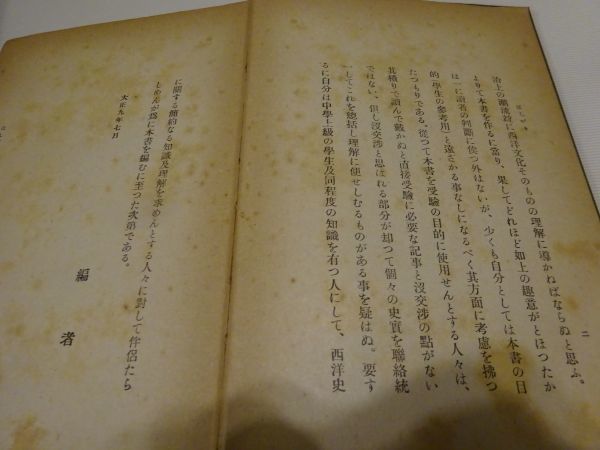 はしがき
二
治上の潮流並に西洋文化そのものの理解に導かねばならぬと思ふ。
よりて本書を作るに當り、果してどれほど如上の趣意がとほつたか
は一に讀者の判斷に俟つ外はないが、少くも自分としては本書の目
的(學生の參考用)と遠ざかる事なしになるべく其方面に考慮を拂つ
たつもりである。從つて本書を受驗の目的に使用せんとする人々は、
其積りで讀んで戴かぬと直接受驗に必要な記事と沒交渉の點がない
ではない、但し沒交渉と思はれる部分が却つて個々の史實を聯絡統
一してこれを總括し理解に便せしむるものがある事を疑はぬ。要す
るに自分は中學上級の學生及同程度の知識を有つ人にして、西洋史
に關する簡約なる知識及理解を求めんとする人々に對して伴侶たら
しめんが爲に本書を編むに至つた次第である。
大正九年七月
編者